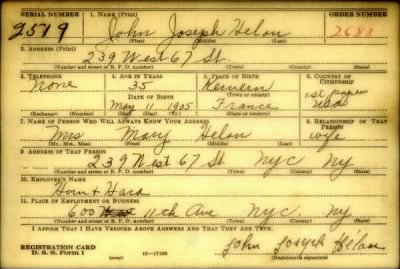 SERIAL NUMBER 1. NAME (Print) ORDER NUMBER
2519 John Joseph Helou 2688
(First) (Middle) (Last)
2. ADDRESS (Print)
239 West 67 St
(Number and street or R. F. D. number) (Town) (County) (State)
3. TELEPHONE 4. AGE IN YEARS 5. PLACE OF BIRTH 6. COUNTRY OF CITIZENSHIP
None 35 1st papers
DATE OF BIRTH (Town or county) USA
May 11 1905 France
(Exchange) (Number) (Mo.) (Day) (Yr.) (State or country)
7. NAME OF PERSON WHO WILL ALWAYS KNOW YOUR ADDRESS 8. RELATIONSHIP OF THAT PERSON
Mrs Mary Helou wife
(Mr., Mrs., Miss) (First) (Middle) (Last)
9. ADDRESS OF THAT PERSON
239 West 67 St NYC NY
(Number and street or R. F. D. number) (Town) (County) (State)
10. EMPLOYER'S NAME
Horn & Hard
11. PLACE OF EMPLOYMENT OR BUSINESS
600 11th Ave NYC NY
(Number and street or R. F. D. number) (Town) (County) (State)
I AFFIRM THAT I HAVE VERIFIED ABOVE ANSWERS AND THAT THEY ARE TRUE.
REGISTRATION CARD John Joseph Hélou
D. S. S. Form 1 (over) 16—17105 (Registrant's signature)